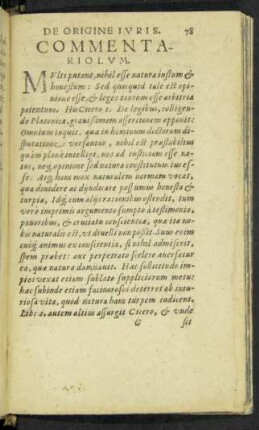 DE ORIGINE IVRIS. 78
COMMENTA-
RIOLVM.
MVlti putant, nihil esse natura iustum &
honestum: Sed quicquid tale est opi-
nione esse, & leges tantum esse arbitria
potentum. Hũc Cicero 1. De legibus, collegen-
do Platonica, grauissimam assertionem opponit:
Omnium inquit, quæ in hominum doctorum di-
sputatione versantur, nihil est præstabilius
quàm planè intelligi, nos ad iustitiam esse na-
tos, neq; opinione sed natura constitutum ius es-
se. Atq; hanc mox naturalem normam vocat,
qua diuidere ac dijudicare possumus honesta &
turpia, Idq; cum alijs rationibus ostendit, tum
verò inprimis argumento sumpto à testimonio,
pauoribus, & cruciatu conscientiæ, quæ ita no-
bis naturalis est, vt diuelli non possit. Suus enim
cuiq; animus ex conscientia, si nihil admiserit,
spem præbet: aut perpetratæ sceleste accusatur
ea, quæ natura damnauit. Hæc solicitudo im-
pios vexat etiam sublato suppliciorum metu:
hæc subinde etiam facinorosos deterret ab iniu-
riosa vita, quod natura hanc turpem iudicent.
Lib: 2. autem altius assurgit Cicero, & vnde
G sit